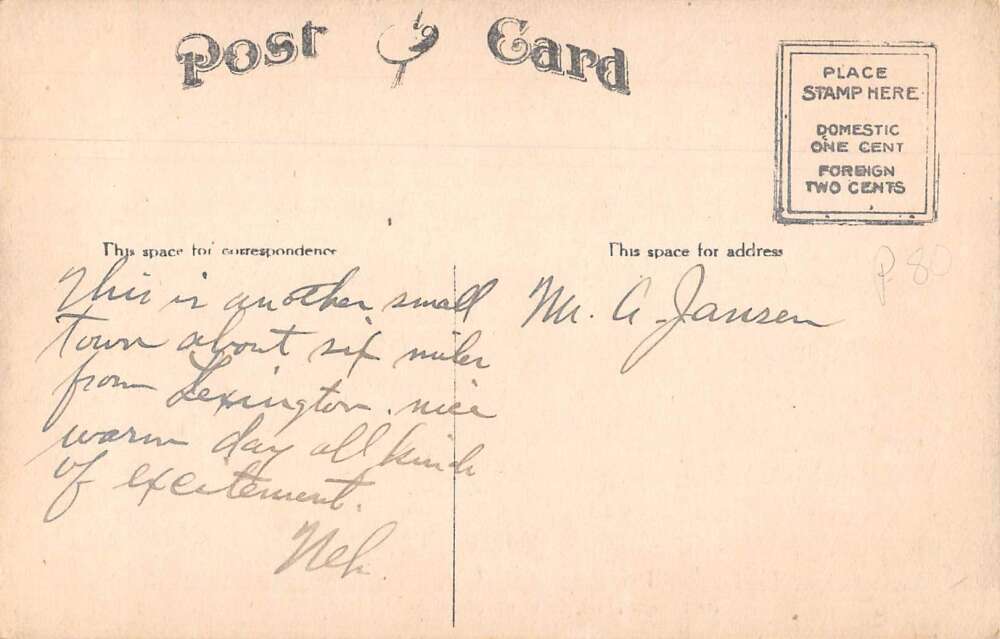 Post Card
PLACE
STAMP HERE
DOMESTIC
ONE CENT
FOREIGN
TWO CENTS
This space for correspondence
This is another small
town about six miles
from Lexington. nice
warm day all kinds
of excitement.
This space for address
Mr. A. Jansen
P 80